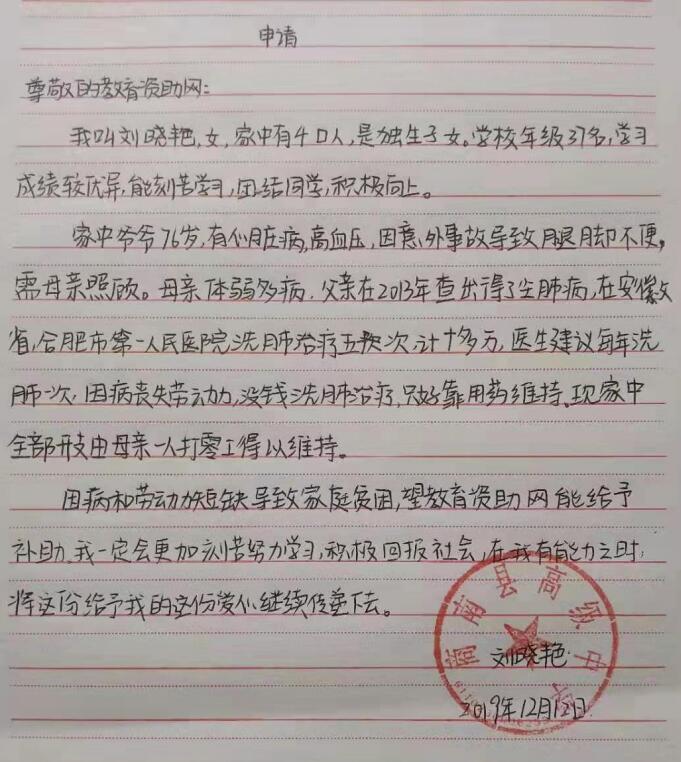 申请
尊敬的教育资助网:
我叫刘晓艳,女,家中有4口人,是独生子女。学校年级37名,学习
成绩较优异,能刻苦学习,团结同学,积极向上。
家中爷爷76岁,有心脏病,高血压,因意外事故导致腿脚不便,
需母亲照顾。母亲体弱多病.父亲在2013年查出得了尘肺病,在安徽
省,合肥市第一人民医院洗肺治疗五次,计十多万,医生建议每年洗
肺一次,因病丧失劳动力,没钱洗肺治疗,只好靠用药维持.现家中
全部开支由母亲一人打零工得以维持。
因病和劳动力短缺导致家庭贫困,望教育资助网能给予
补助.我一定会更加刻苦努力学习,积极回报社会,在我有能力之时,
将这份给予我的这份爱心继续传递下去。
商南县高级中学
刘晓艳
2019年12月12日.